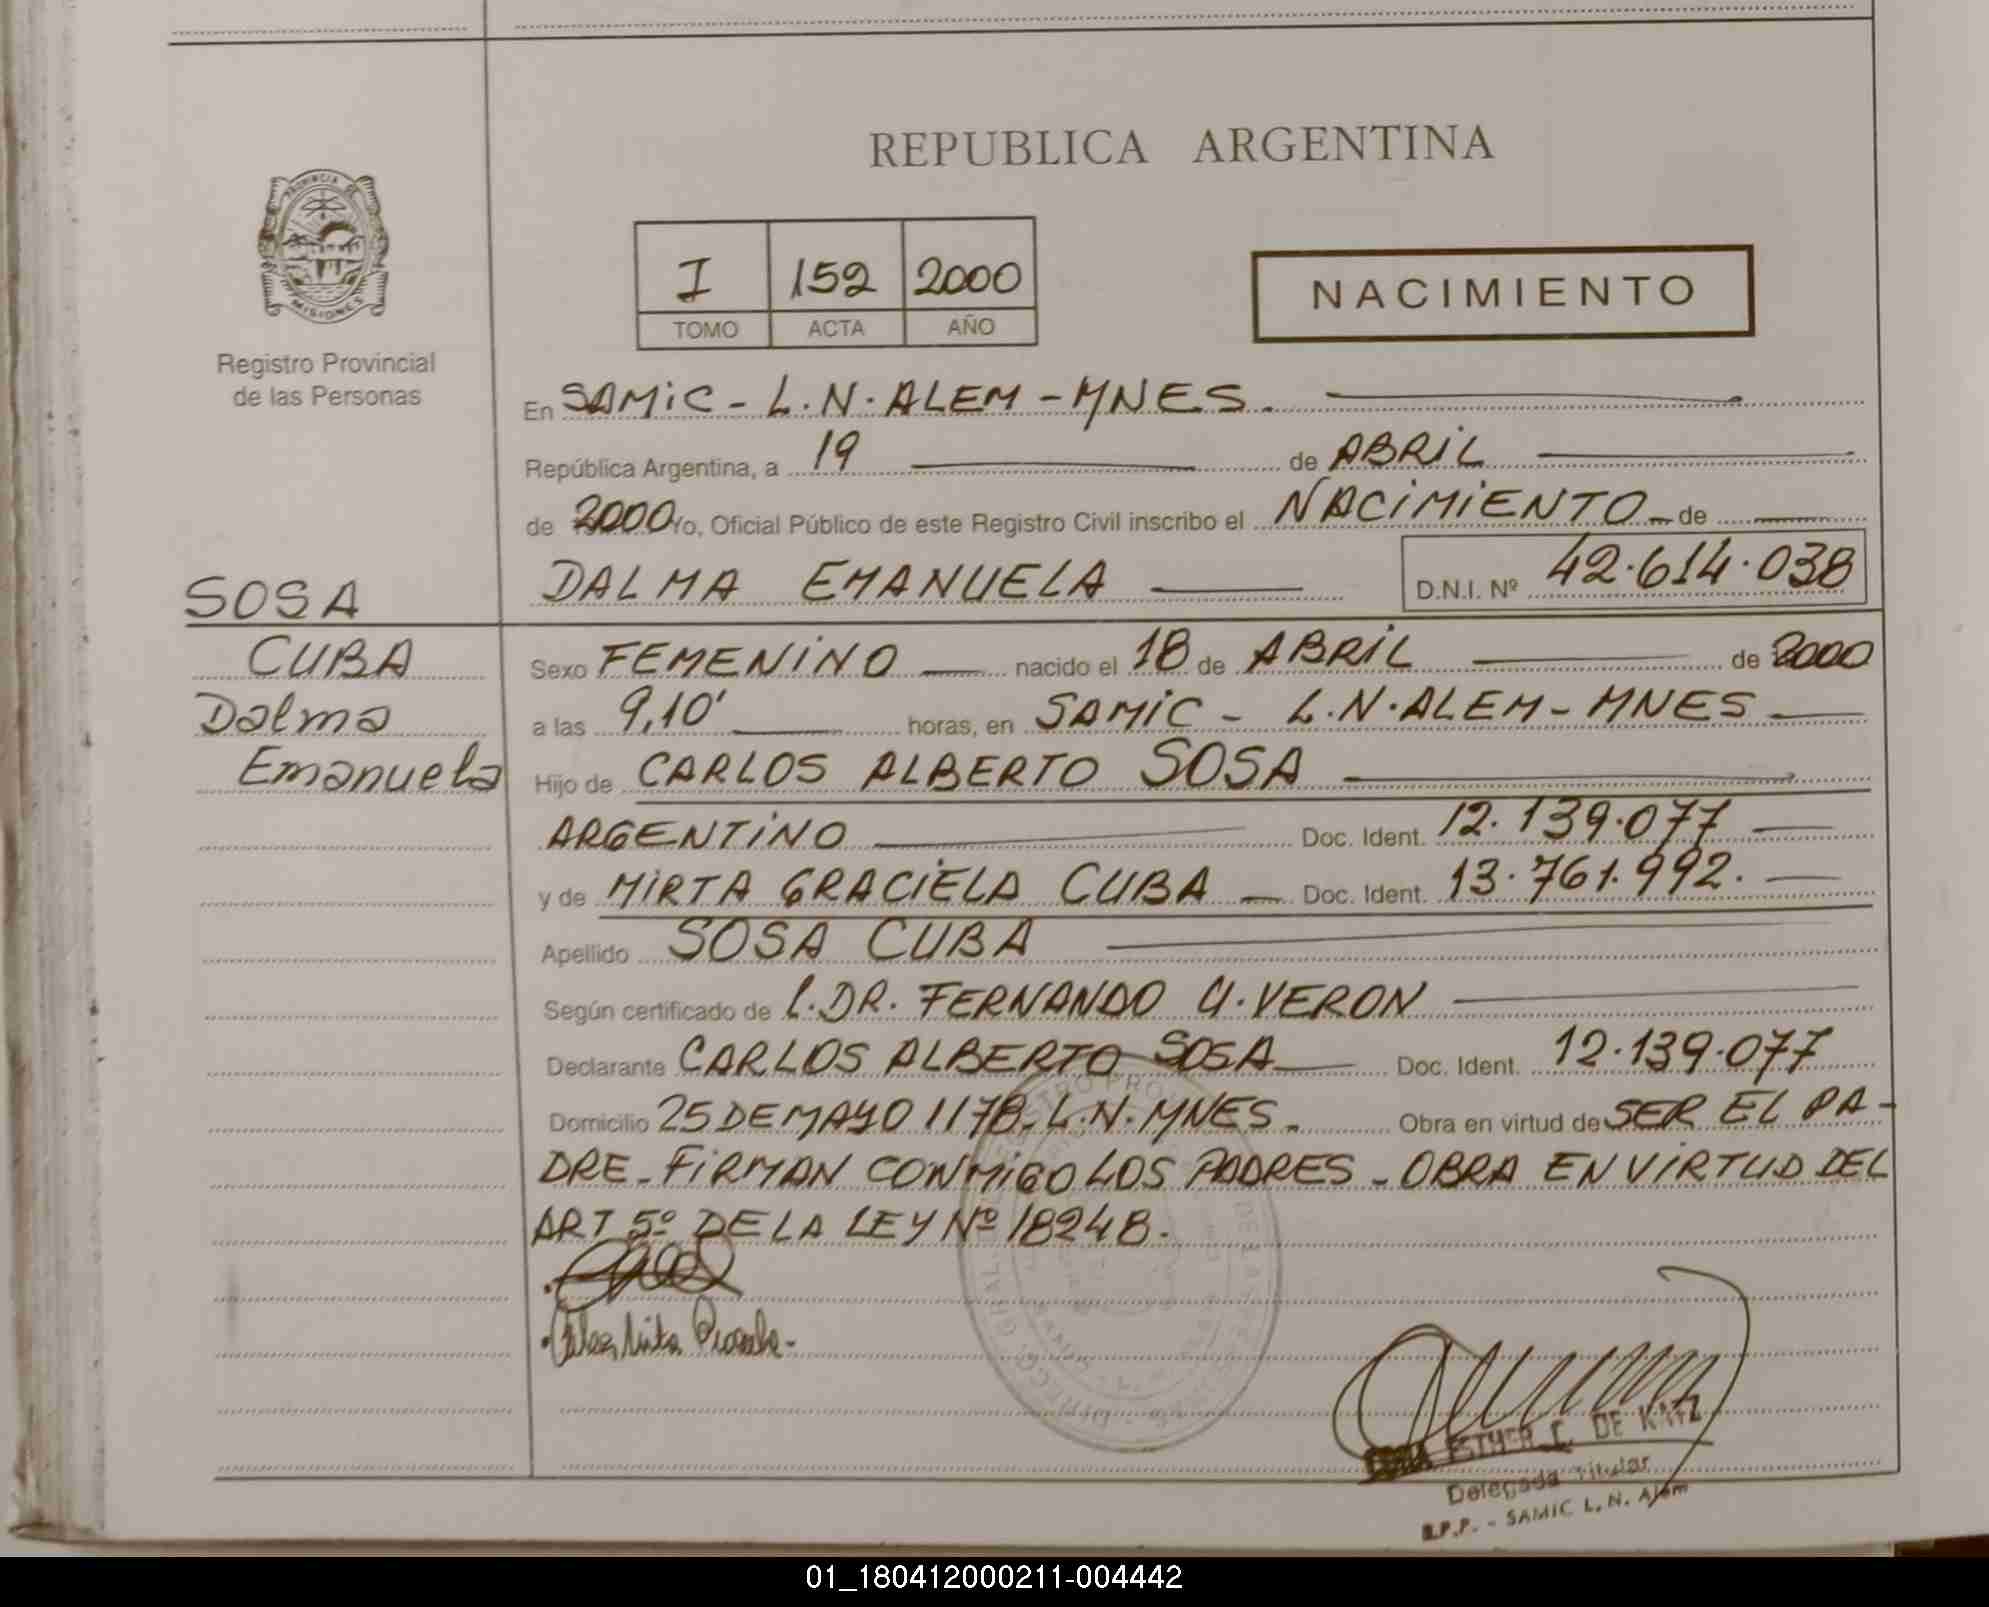 REPUBLICA ARGENTINA
PROVINCIA DE
MISIONES
Registro Provincial
de las Personas
I 152 2000
TOMO ACTA AÑO
NACIMIENTO
En SAMIC - L.N. ALEM - MNES.
República Argentina, a 19 de ABRIL
de 2000 Yo, Oficial Público de este Registro Civil inscribo el NACIMIENTO de
DALMA EMANUELA D.N.I. Nº 42.614.038
SOSA
CUBA
Dalma
Emanuela
Sexo FEMENINO nacido el 18 de ABRIL de 2000
a las 9,10' horas, en SAMIC - L.N. ALEM - MNES
Hijo de CARLOS ALBERTO SOSA
ARGENTINO Doc. Ident. 12.139.077
y de MIRTA GRACIELA CUBA Doc. Ident. 13.761.992.
Apellido SOSA CUBA
Según certificado de DR. FERNANDO VERON
Declarante CARLOS ALBERTO SOSA Doc. Ident. 12.139.077
Domicilio 25 DE MAYO 1178. L.N. MNES. Obra en virtud de SER EL PA-
DRE - FIRMAN CONMIGO LOS PADRES - OBRA EN VIRTUD DEL
ART 5º DE LA LEY Nº 18248.
ESTHER C. DE KATZ
Delegada Titular
R.P.P. - SAMIC L. N. Alem
01_180412000211-004442